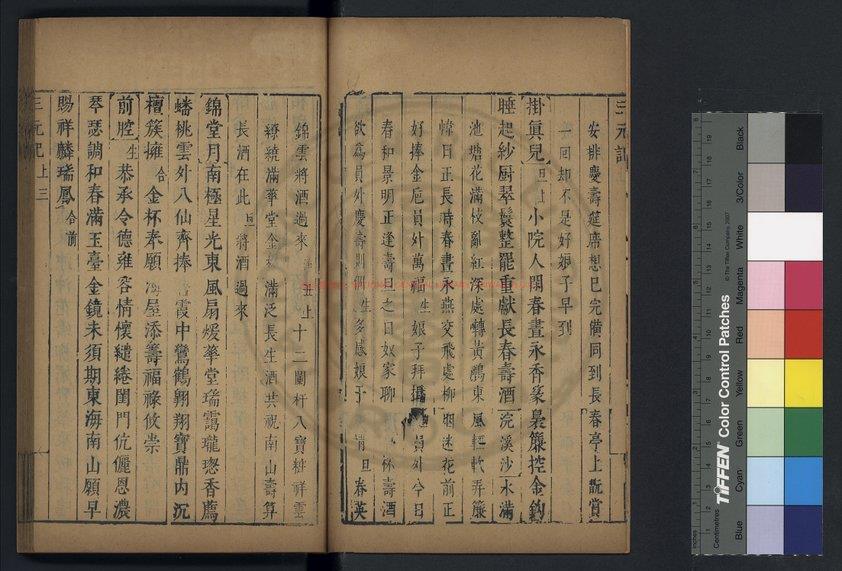 三元記
安排慶壽筵席想已完備同到長春亭上翫賞
一囬却不是好娘子早到
掛真兒 旦上 小院人閑春晝永香篆裊簾控金鈎
睡起紗厨翠鬟整罷重獻長春壽酒 浣溪沙 水滿
池塘花滿枝亂紅深處轉黃鸝東風輕軟弄簾
幃日正長時春晝永燕交飛處柳烟迷花前正
好捧金巵員外萬福 生 娘子拜揖 員外今日
春和景明正逢壽旦之日奴家聊 杯壽酒
欲為員外慶壽則個 生 多感娘子 情 旦 春英
錦雲將酒過來 丑上 十二闌杆八寶粧祥雲
繚繞滿華堂金 滿泛長生酒共祝南山壽算
長酒在此 旦 將酒過來
錦堂月 南極星光東風扇煖華堂瑞靄瓏璁香薦
蟠桃雲外八仙齊捧 霞中鸞鶴翱翔寶鼎內沉
檀簇擁 合 金杯奉願 屋添籌福祿攸崇
前腔 生 恭承令德雍容情懷繾綣閨門伉儷恩濃
琴瑟調和春滿玉臺金鏡未須期東海南山願早
賜祥麟瑞鳳 合前
三元記 上 三
TIFFEN Color Control Patches
© The Tiffen Company, 2007
Blue Cyan Green Yellow Red Magenta White 3/Color Black
Inches
Centimetres